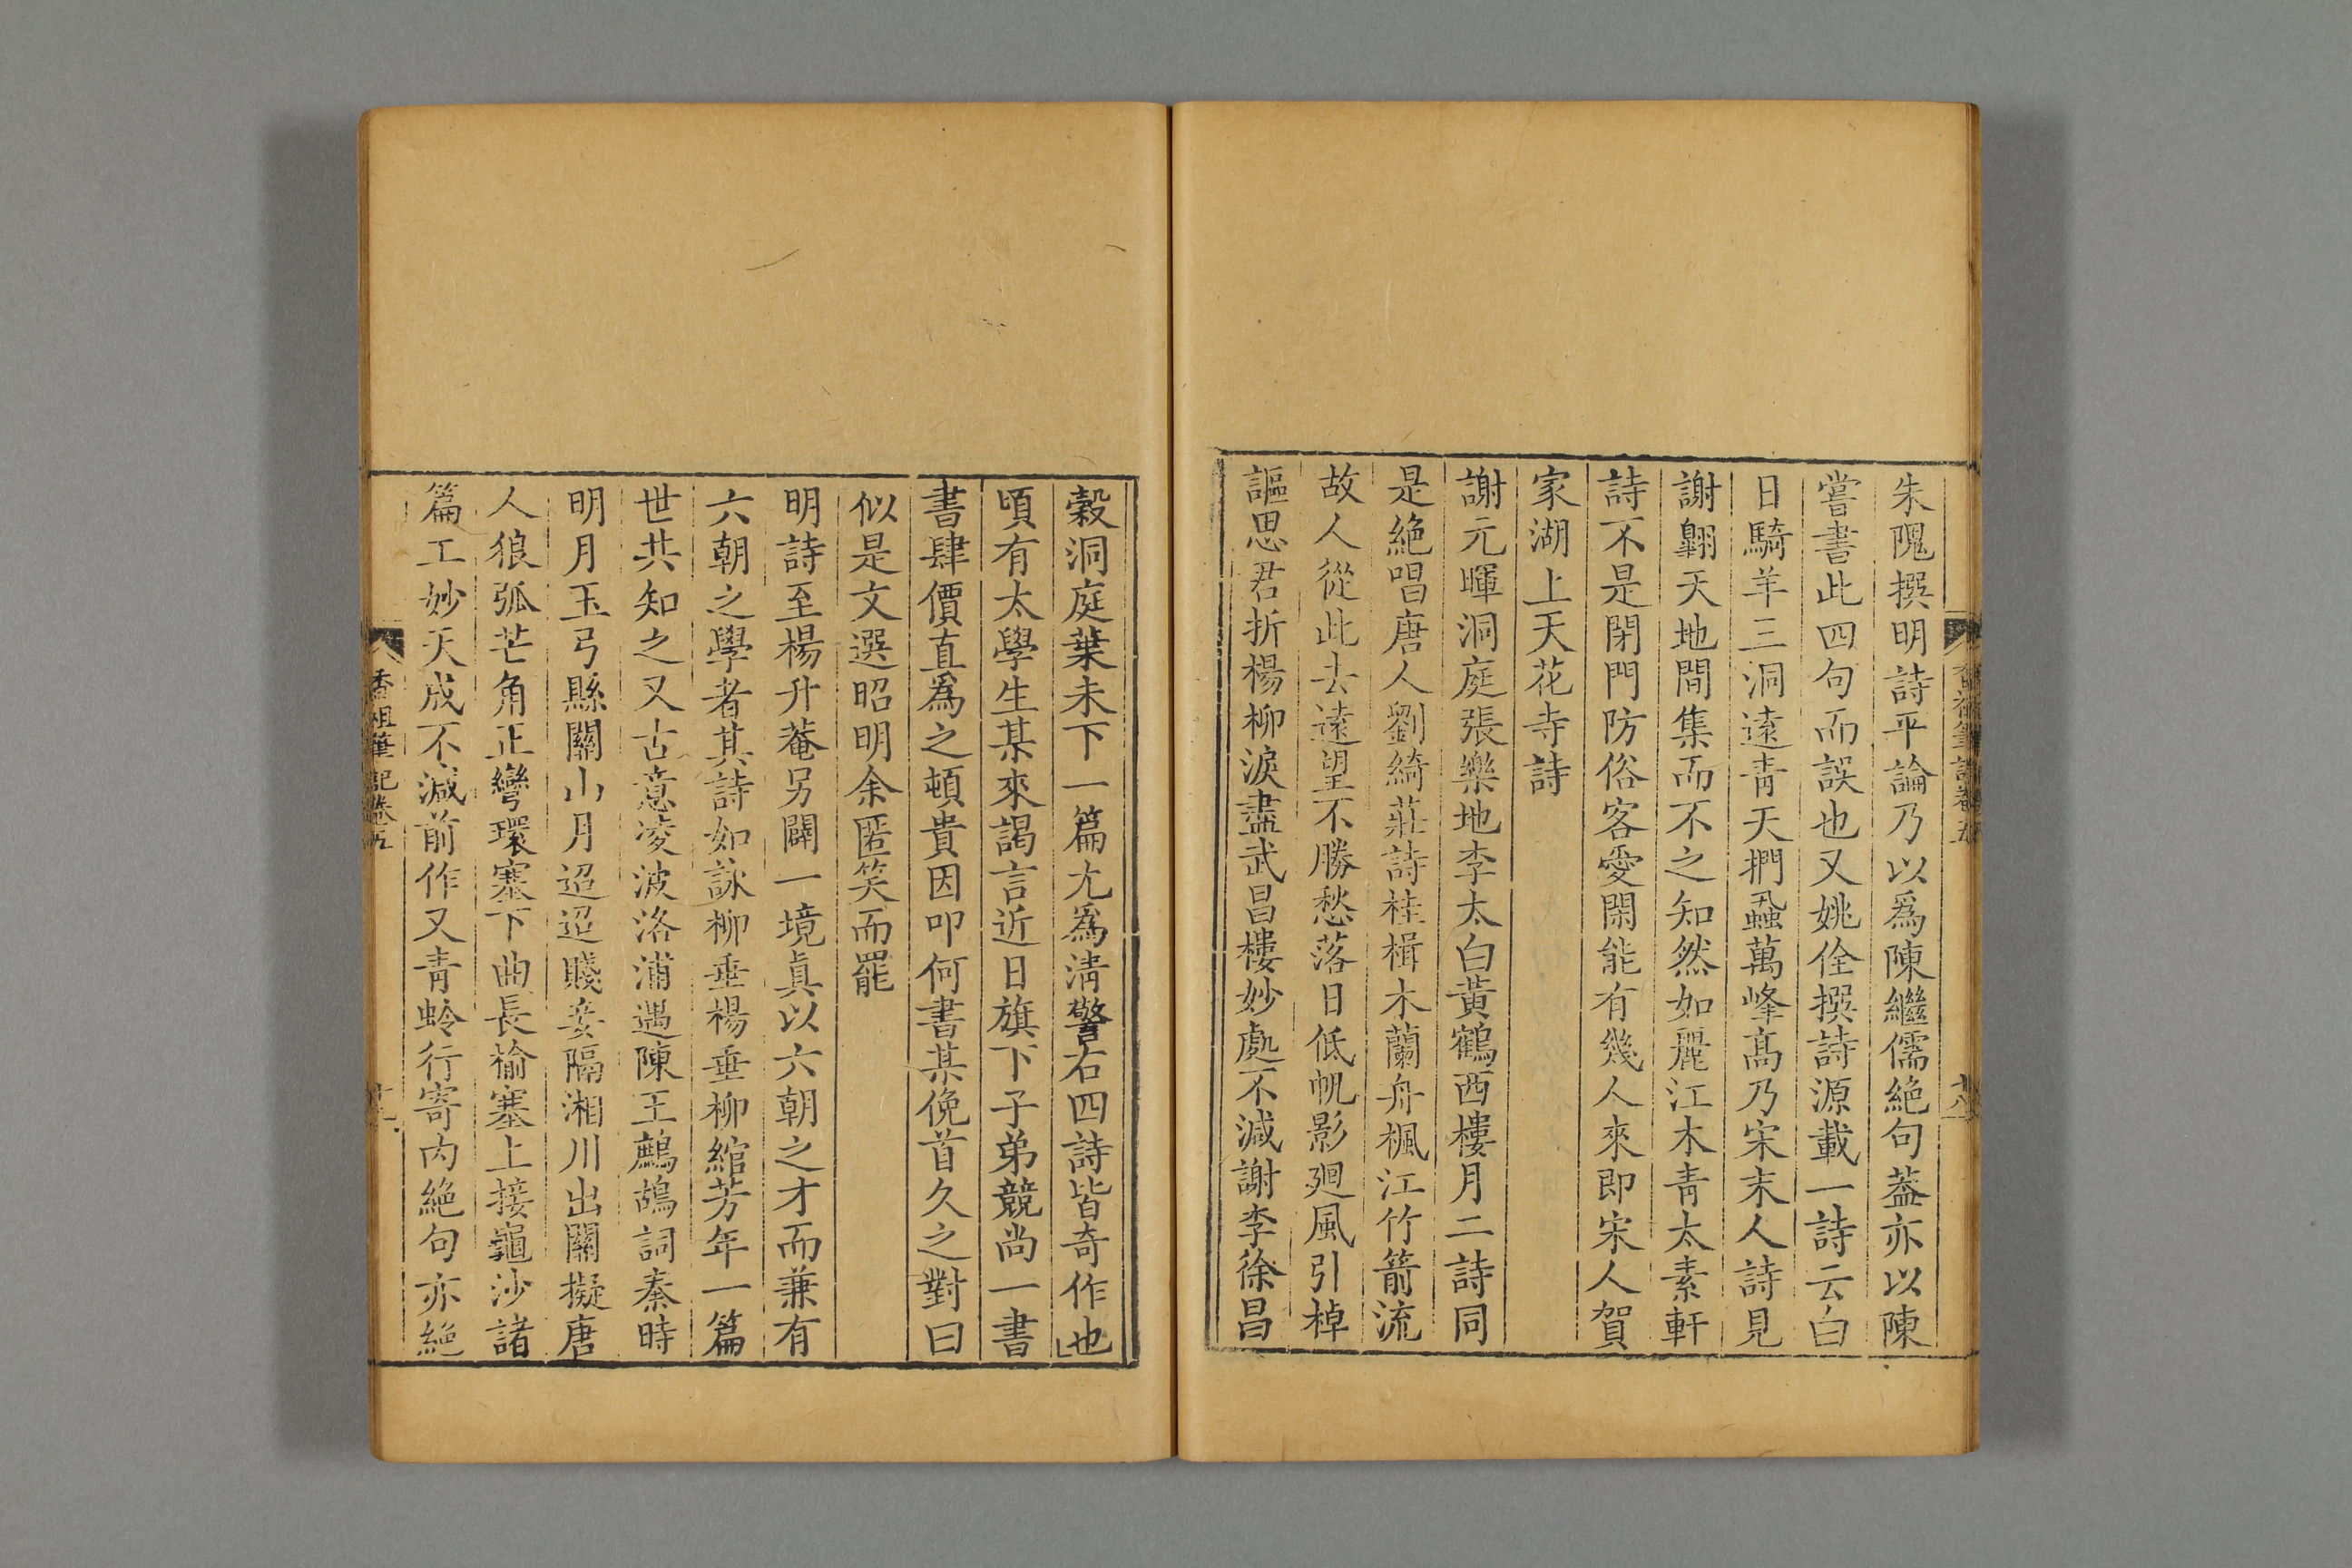 朱隗撰明詩平論乃以爲陳繼儒絶句葢亦以陳
嘗書此四句而誤也又姚佺撰詩源載一詩云白
日騎羊三洞遠青天捫蝨萬峰髙乃宋末人詩見
謝翺天地間集而不之知然如麗江木青太素軒
詩不是閉門防俗客愛閑能有幾人來即宋人賀
家湖上天花寺詩
謝元暉洞庭張樂地李太白黄鶴西樓月二詩同
是絶唱唐人劉綺莊詩桂楫木蘭舟楓江竹箭流
故人從此去遠望不勝愁落日低帆影廻風引棹
謳思君折楊柳淚盡武昌樓妙處不減謝李徐昌
穀洞庭葉未下一篇尤爲清警右四詩皆奇作也
頃有太學生某來謁言近日旗下子弟競尚一書
書肆價直爲之頓貴因叩何書某俛首久之對曰
似是文選昭明余匿笑而罷
明詩至楊升菴另闢一境眞以六朝之才而兼有
六朝之學者其詩如詠柳垂楊垂柳綰芳年一篇
世共知之又古意凌波洛浦遇陳王鷓鴣詞秦時
明月玉弓縣關山月迢迢賤妾隔湘川出關擬唐
人狼弧芒角正彎環塞下曲長榆塞上接龜沙諸
篇工妙天成不減前作又青蛉行寄内絶句亦絶
香祖筆記卷五